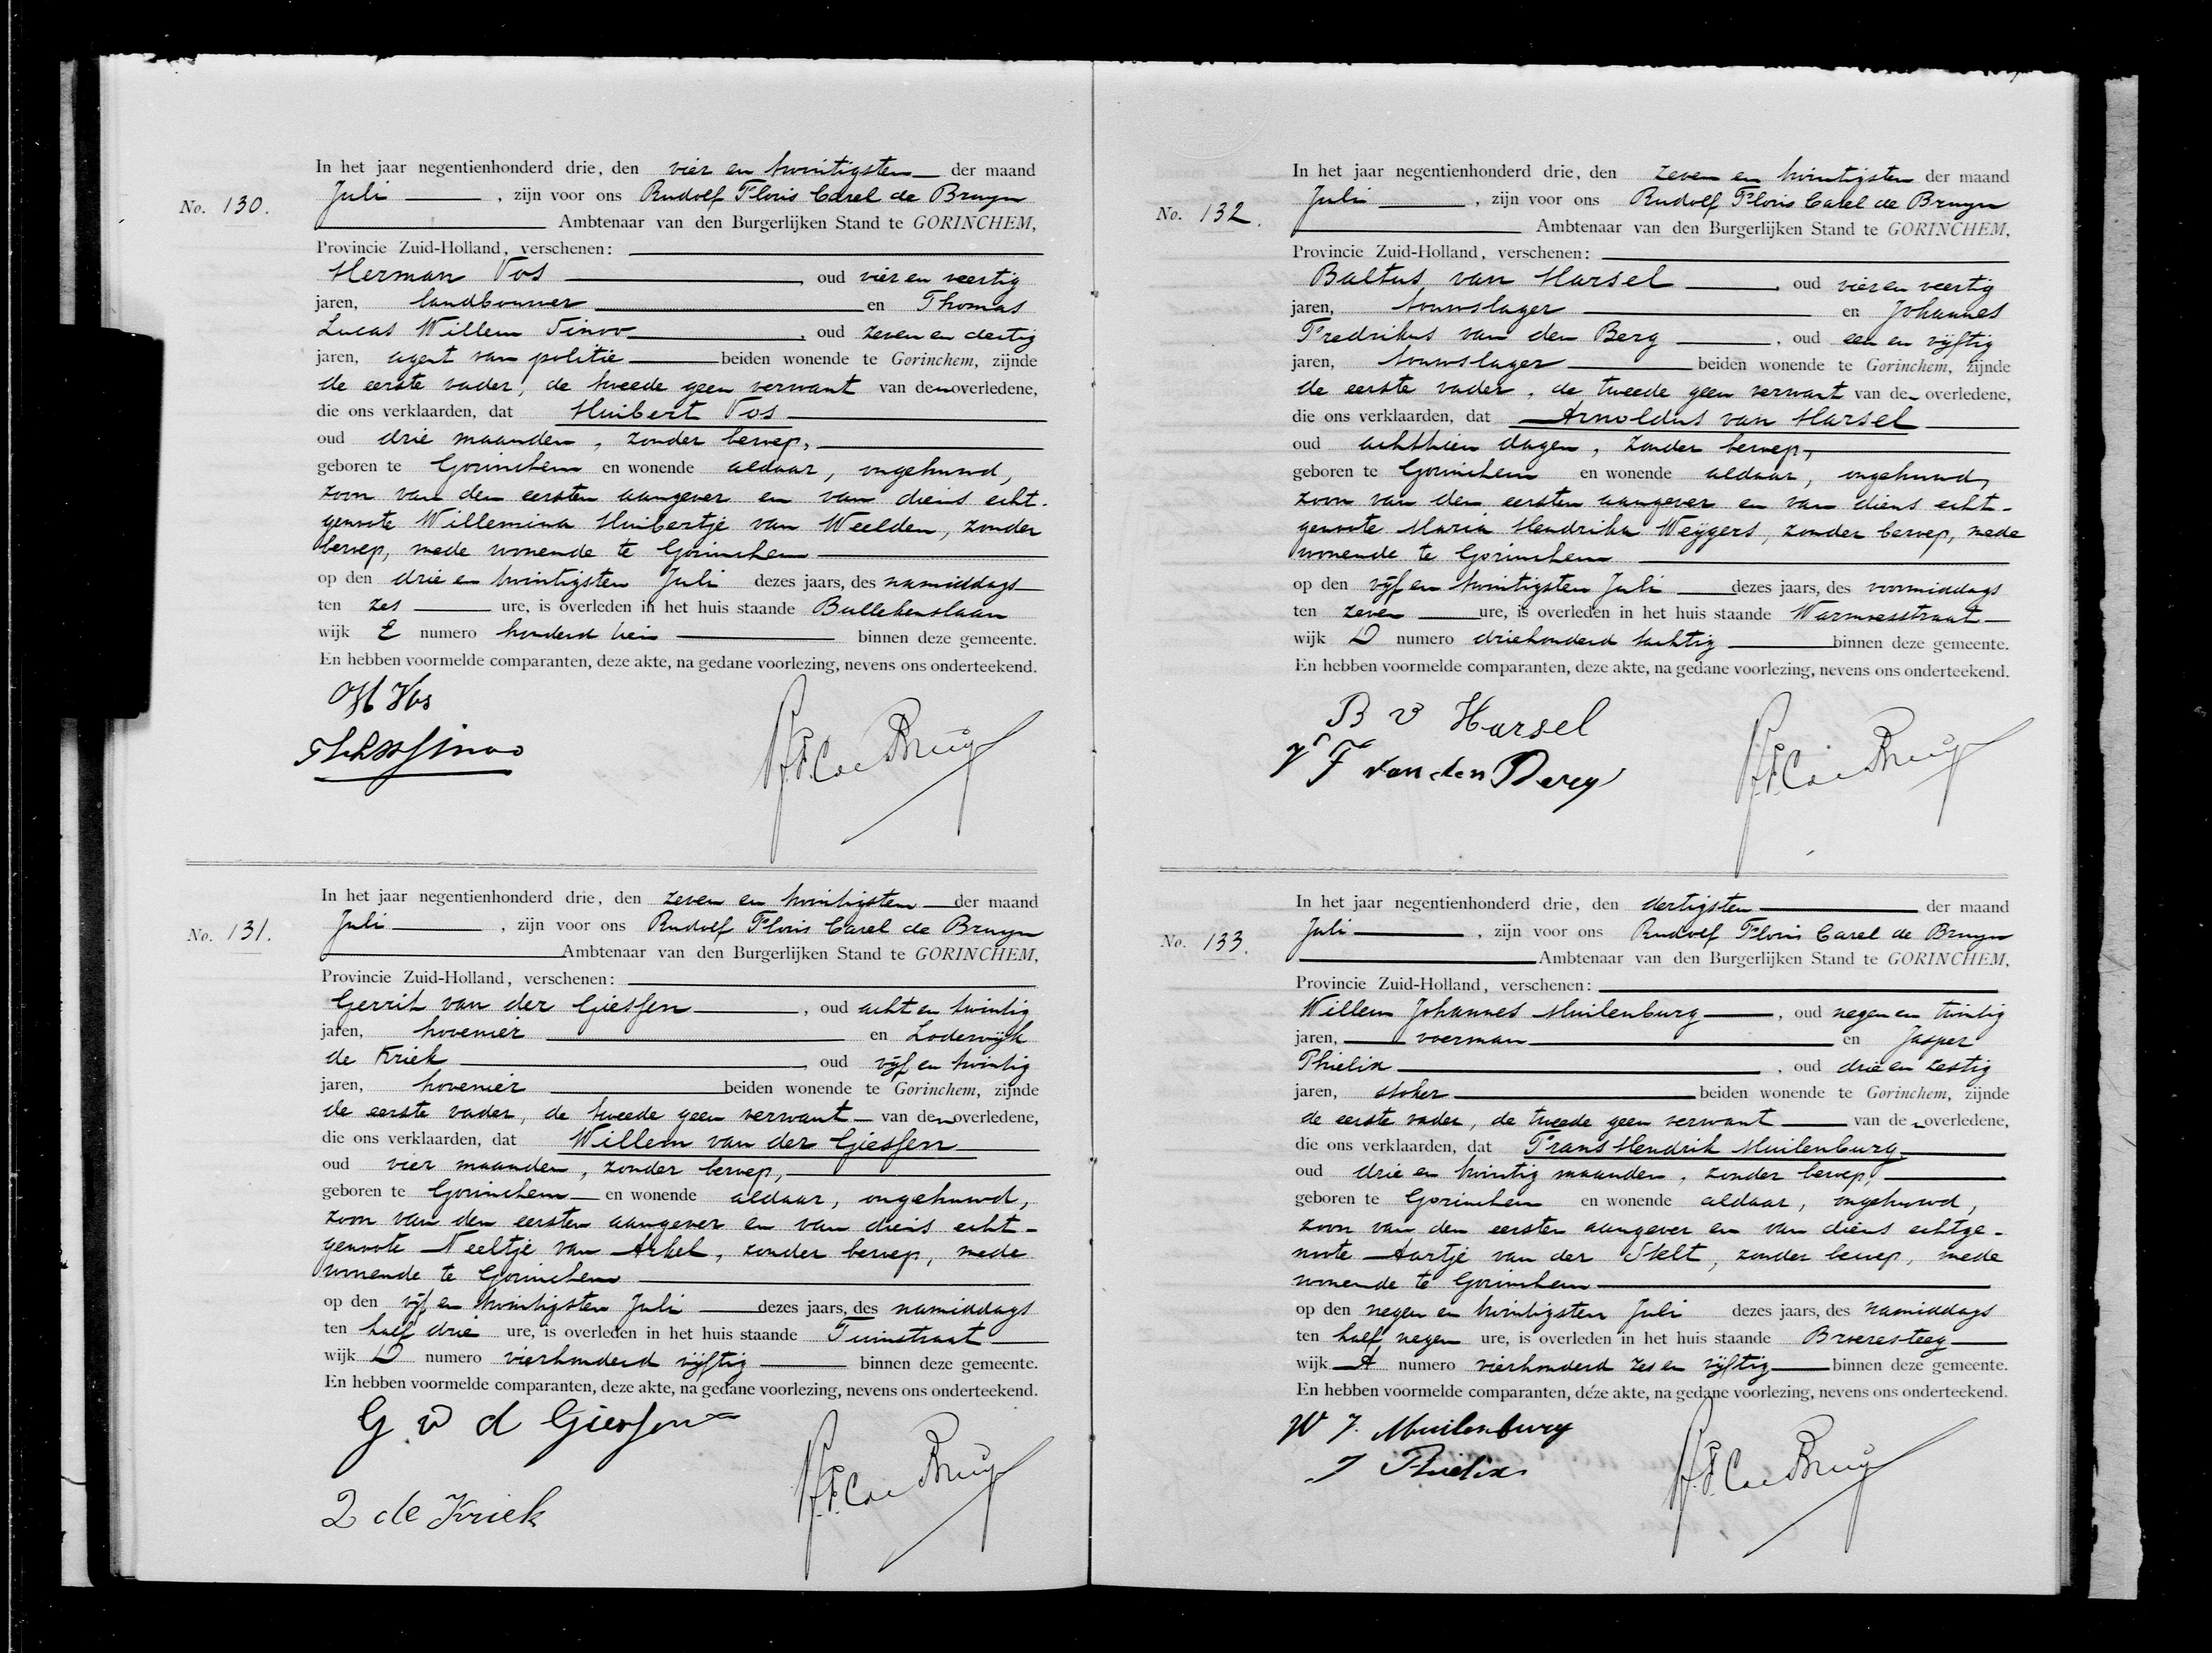 In het jaar negentienhonderd drie, den vier en twintigsten der maand
No. 130.
Juli, zijn voor ons Rudolf Floris Carel de Bruyn
Ambtenaar van den Burgerlijken Stand te GORINCHEM,
Provincie Zuid-Holland, verschenen:
Herman Vos, oud vier en veertig
jaren, landbouwer en Thomas
Lucas Willem Sinoo, oud zeven en dertig
jaren, agent van politie beiden wonende te Gorinchem, zijnde
de eerste vader, de tweede geen verwant van den overledene,
die ons verklaarden, dat Huibert Vos
oud drie maanden, zonder beroep,
geboren te Gorinchem en wonende aldaar, ongehuwd,
zoon van den eersten aangever en van diens echt-
genoote Willemina Huibertje van Weelden, zonder
beroep, mede wonende te Gorinchem
op den drie en twintigsten Juli dezes jaars, des namiddags
ten zes ure, is overleden in het huis staande Bullekenslaan
wijk E numero honderd tien binnen deze gemeente.
En hebben voormelde comparanten, deze akte, na gedane voorlezing, nevens ons onderteekend.
H Vos
In het jaar negentienhonderd drie, den zeven en twintigsten der maand
No. 131.
Juli, zijn voor ons Rudolf Floris Carel de Bruyn
Ambtenaar van den Burgerlijken Stand te GORINCHEM,
Provincie Zuid-Holland, verschenen:
Gerrit van der Giessen, oud acht en twintig
jaren, hovenier en Lodewijk
de Kriek, oud vijf en twintig
jaren, hovenier beiden wonende te Gorinchem, zijnde
de eerste vader, de tweede geen verwant van den overledene,
die ons verklaarden, dat Willem van der Giessen
oud vier maanden, zonder beroep,
geboren te Gorinchem en wonende aldaar, ongehuwd,
zoon van den eersten aangever en van diens echt-
genoote Neeltje van Arkel, zonder beroep, mede
wonende te Gorinchem
op den vijf en twintigsten Juli dezes jaars, des namiddags
ten half drie ure, is overleden in het huis staande Tuinstraat
wijk D numero vierhonderd vijftig binnen deze gemeente.
En hebben voormelde comparanten, deze akte, na gedane voorlezing, nevens ons onderteekend.
G v d Giessen
L de Kriek
In het jaar negentienhonderd drie, den zeven en twintigsten der maand
No. 132.
Juli, zijn voor ons Rudolf Floris Carel de Bruyn
Ambtenaar van den Burgerlijken Stand te GORINCHEM,
Provincie Zuid-Holland, verschenen:
Baltus van Harsel, oud vier en veertig
jaren, touwslager en Johannes
Fredrikus van den Berg, oud een en vijftig
jaren, touwslager beiden wonende te Gorinchem, zijnde
de eerste vader, de tweede geen verwant van den overledene,
die ons verklaarden, dat Arnoldus van Harsel
oud achttien dagen, zonder beroep,
geboren te Gorinchem en wonende aldaar, ongehuwd,
zoon van den eersten aangever en van diens echt-
genoote Maria Hendrika Weijgers, zonder beroep, mede
wonende te Gorinchem
op den vijf en twintigsten Juli dezes jaars, des voormiddags
ten zeven ure, is overleden in het huis staande Warmoesstraat
wijk D numero driehonderd tachtig binnen deze gemeente.
En hebben voormelde comparanten, deze akte, na gedane voorlezing, nevens ons onderteekend.
B v Harsel
J F van den Berg
In het jaar negentienhonderd drie, den dertigsten der maand
No. 133.
Juli, zijn voor ons Rudolf Floris Carel de Bruyn
Ambtenaar van den Burgerlijken Stand te GORINCHEM,
Provincie Zuid-Holland, verschenen:
Willem Johannes Muilenburg, oud negen en twintig
jaren, voerman en Jasper
Phielix, oud drie en zestig
jaren, stoker beiden wonende te Gorinchem, zijnde
de eerste vader, de tweede geen verwant van den overledene,
die ons verklaarden, dat Frans Hendrik Muilenburg
oud drie en twintig maanden, zonder beroep,
geboren te Gorinchem en wonende aldaar, ongehuwd,
zoon van den eersten aangever en van diens echtge-
noote Aartje van der Stelt, zonder beroep, mede
wonende te Gorinchem
op den negen en twintigsten Juli dezes jaars, des namiddags
ten half negen ure, is overleden in het huis staande Broeresteeg
wijk A numero vierhonderd zes en vijftig binnen deze gemeente.
En hebben voormelde comparanten, deze akte, na gedane voorlezing, nevens ons onderteekend.
W J. Muilenburg
J Phielix